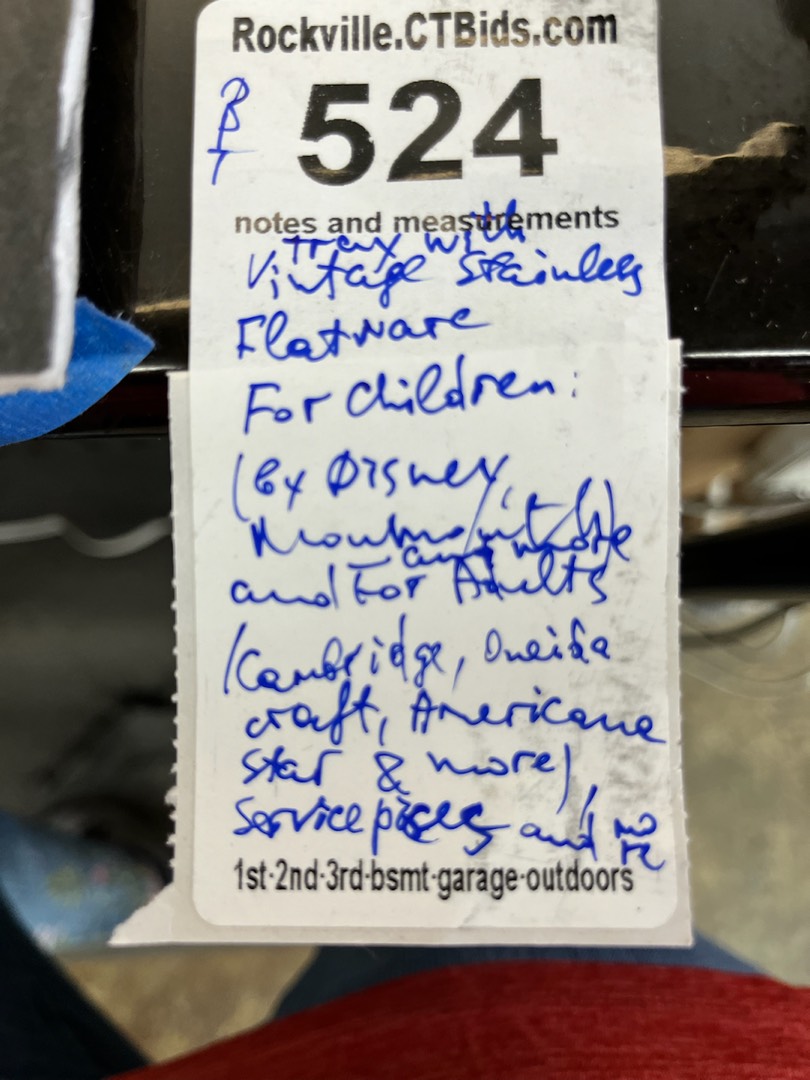 Rockville.CTBids.com
B
T
524
notes and measurements
tray with
Vintage Stainless
Flatware
For Children:
(by Disney,
and more
and For Adults
(Cambridge, Oneida
craft, Americana
Star & more),
Service pieces and more
1st-2nd-3rd-bsmt-garage-outdoors